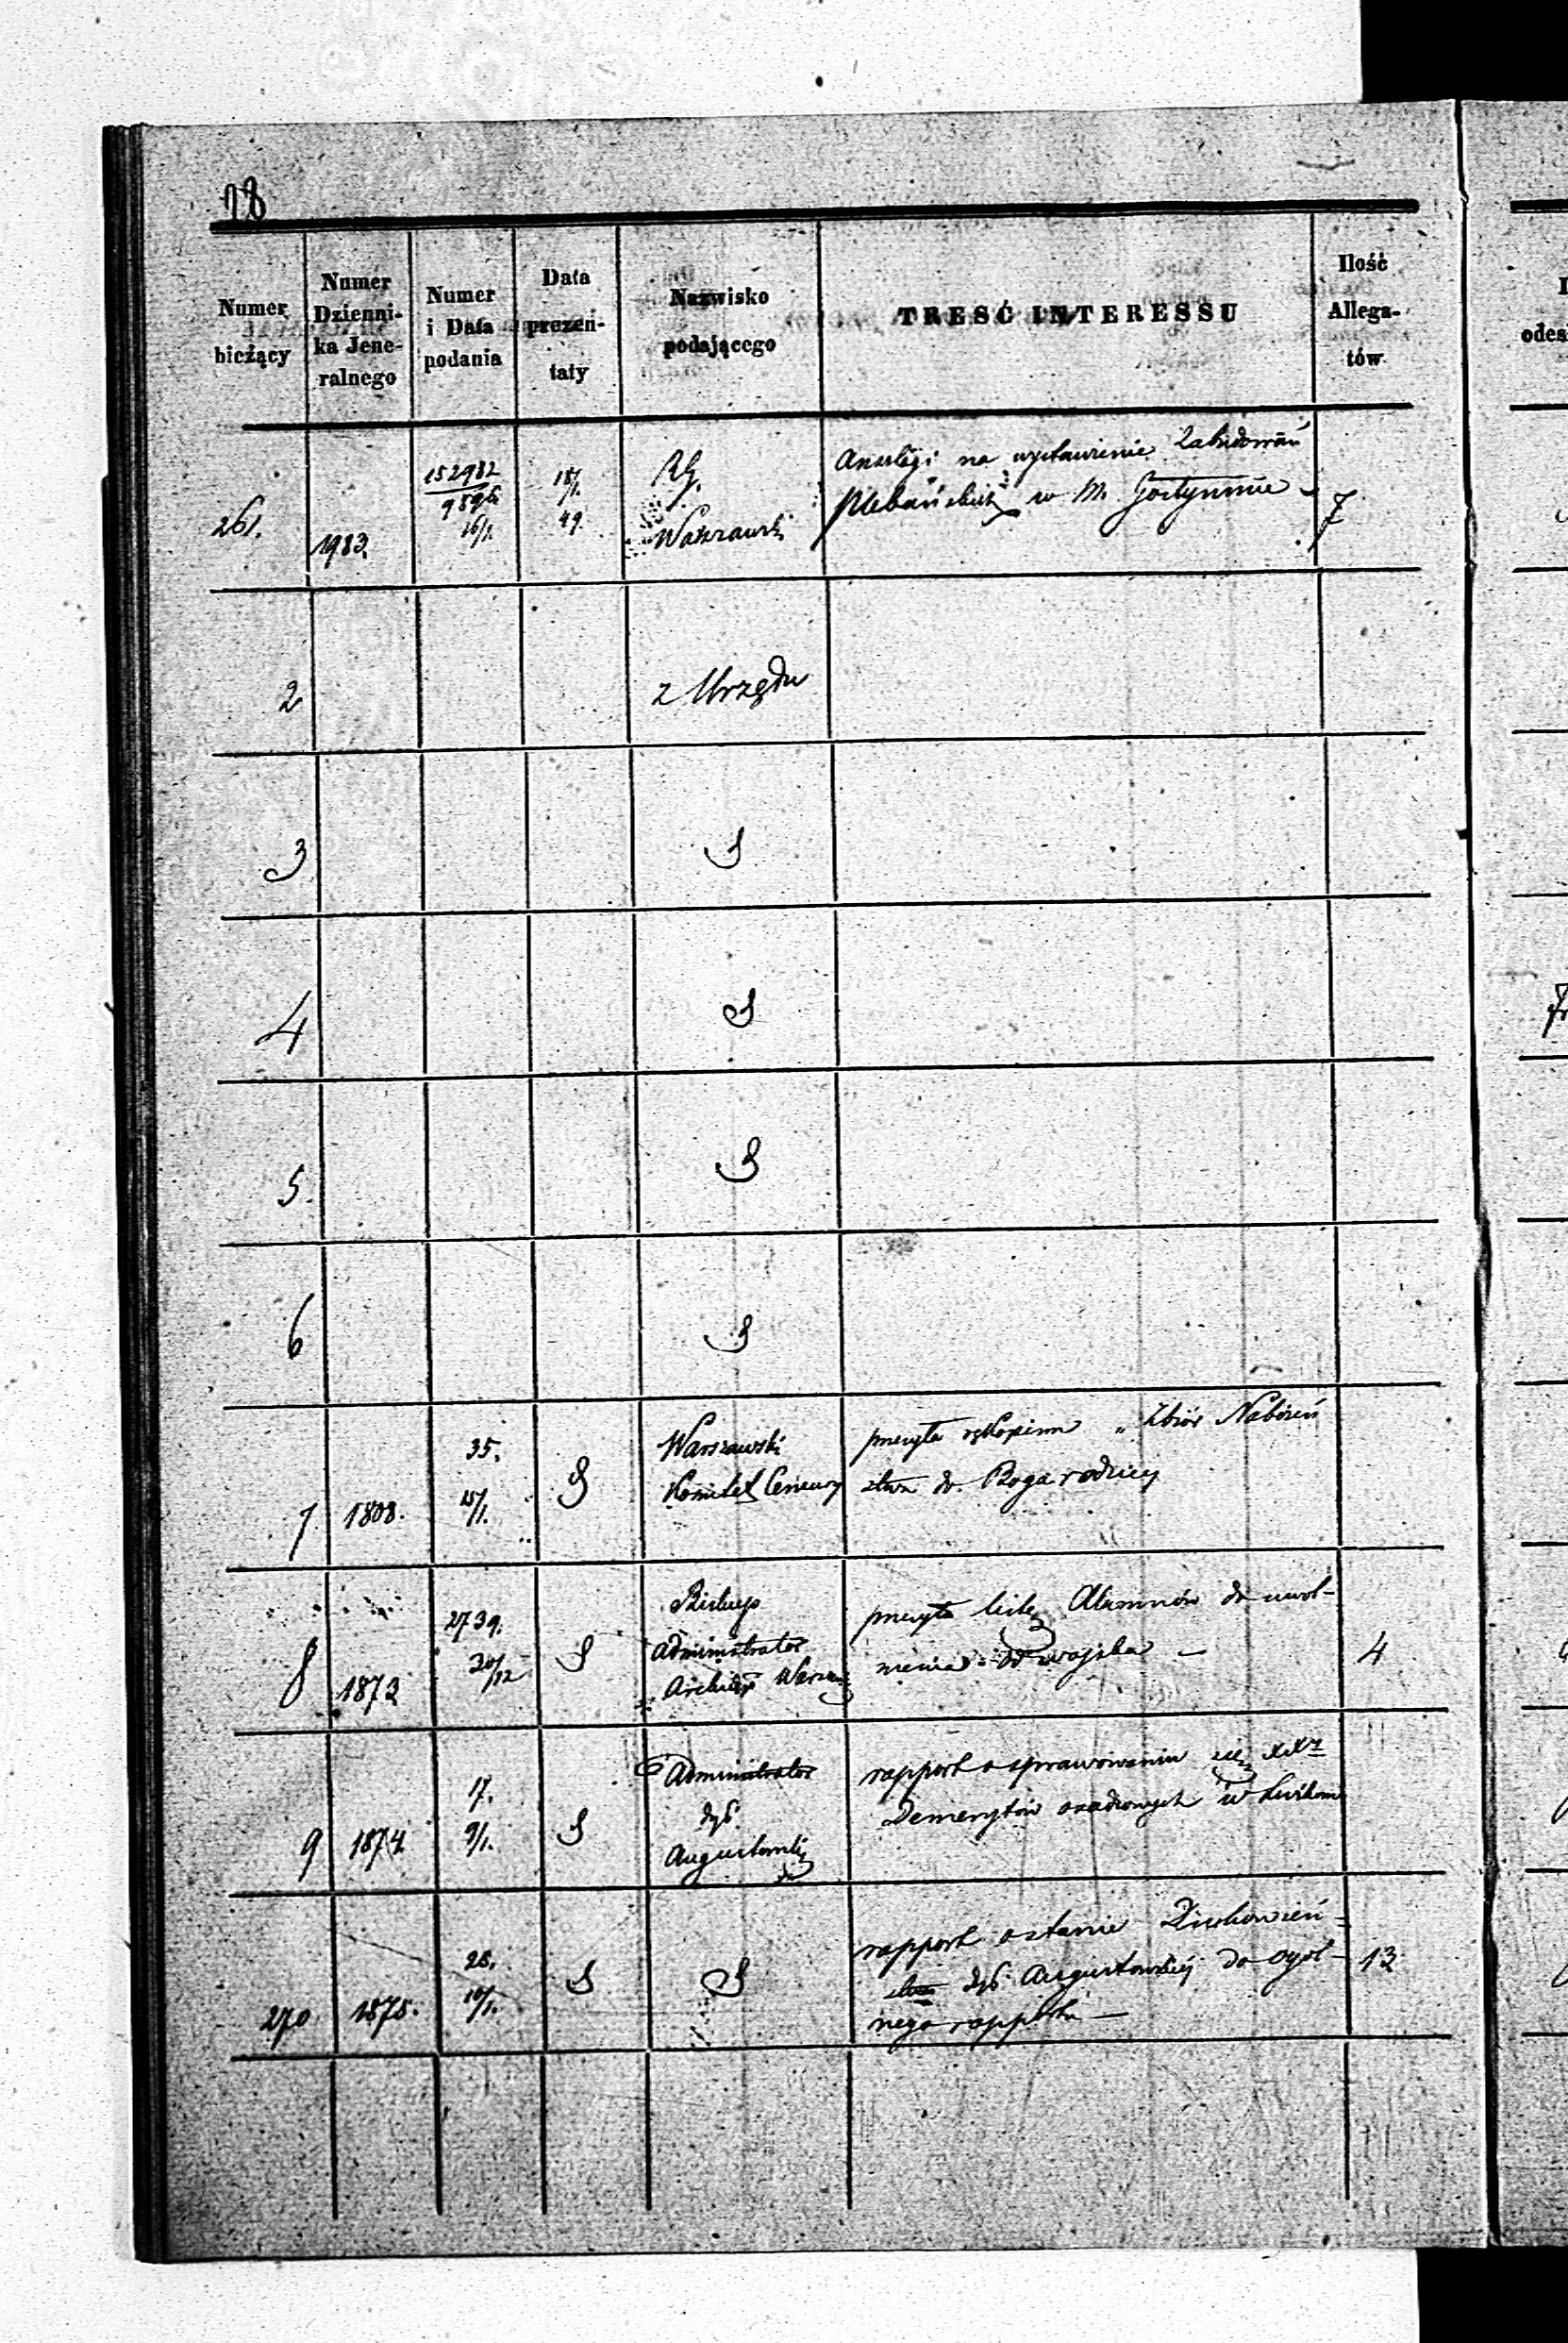 28
Numer bieżący
Numer Dzienni-ka Jene-ralnego
Numer i Data podania
Data prezen-taty
Nazwisko podającego
TREŚĆ INTERESSU
Ilość Allega-tów
261.
1983.
152982
9896
16/1.
18/1.
49
RG.
Warszawski
Anszlagi na wystawienie Zabudowań
Plebańskich w M. Gostyninie -
7
2
z Urzędu
3
4
5.
6
7
1808.
35.
15/1.
Warszawski
Komitet Cenzury
przesyła rękopism „ Zbiór Nabożeń
stwa do Boga rodzicy
8
1873
2739.
30/12
Biskup
Administrator
Archidy Warszaw
przesyła listę Alumnów do uwol-
nienia od wojska -
4
9
1874
17.
9/1.
Administrator
dyć.
Augustowskiej
rapport o sprawowaniu się XXży
Demerytów osadzonych w
270
1875.
26.
10/1.
rapport o stanie Duchowień=
stwa dyć. Augustowskiej do ogól-
nego rapportu -
13
odes